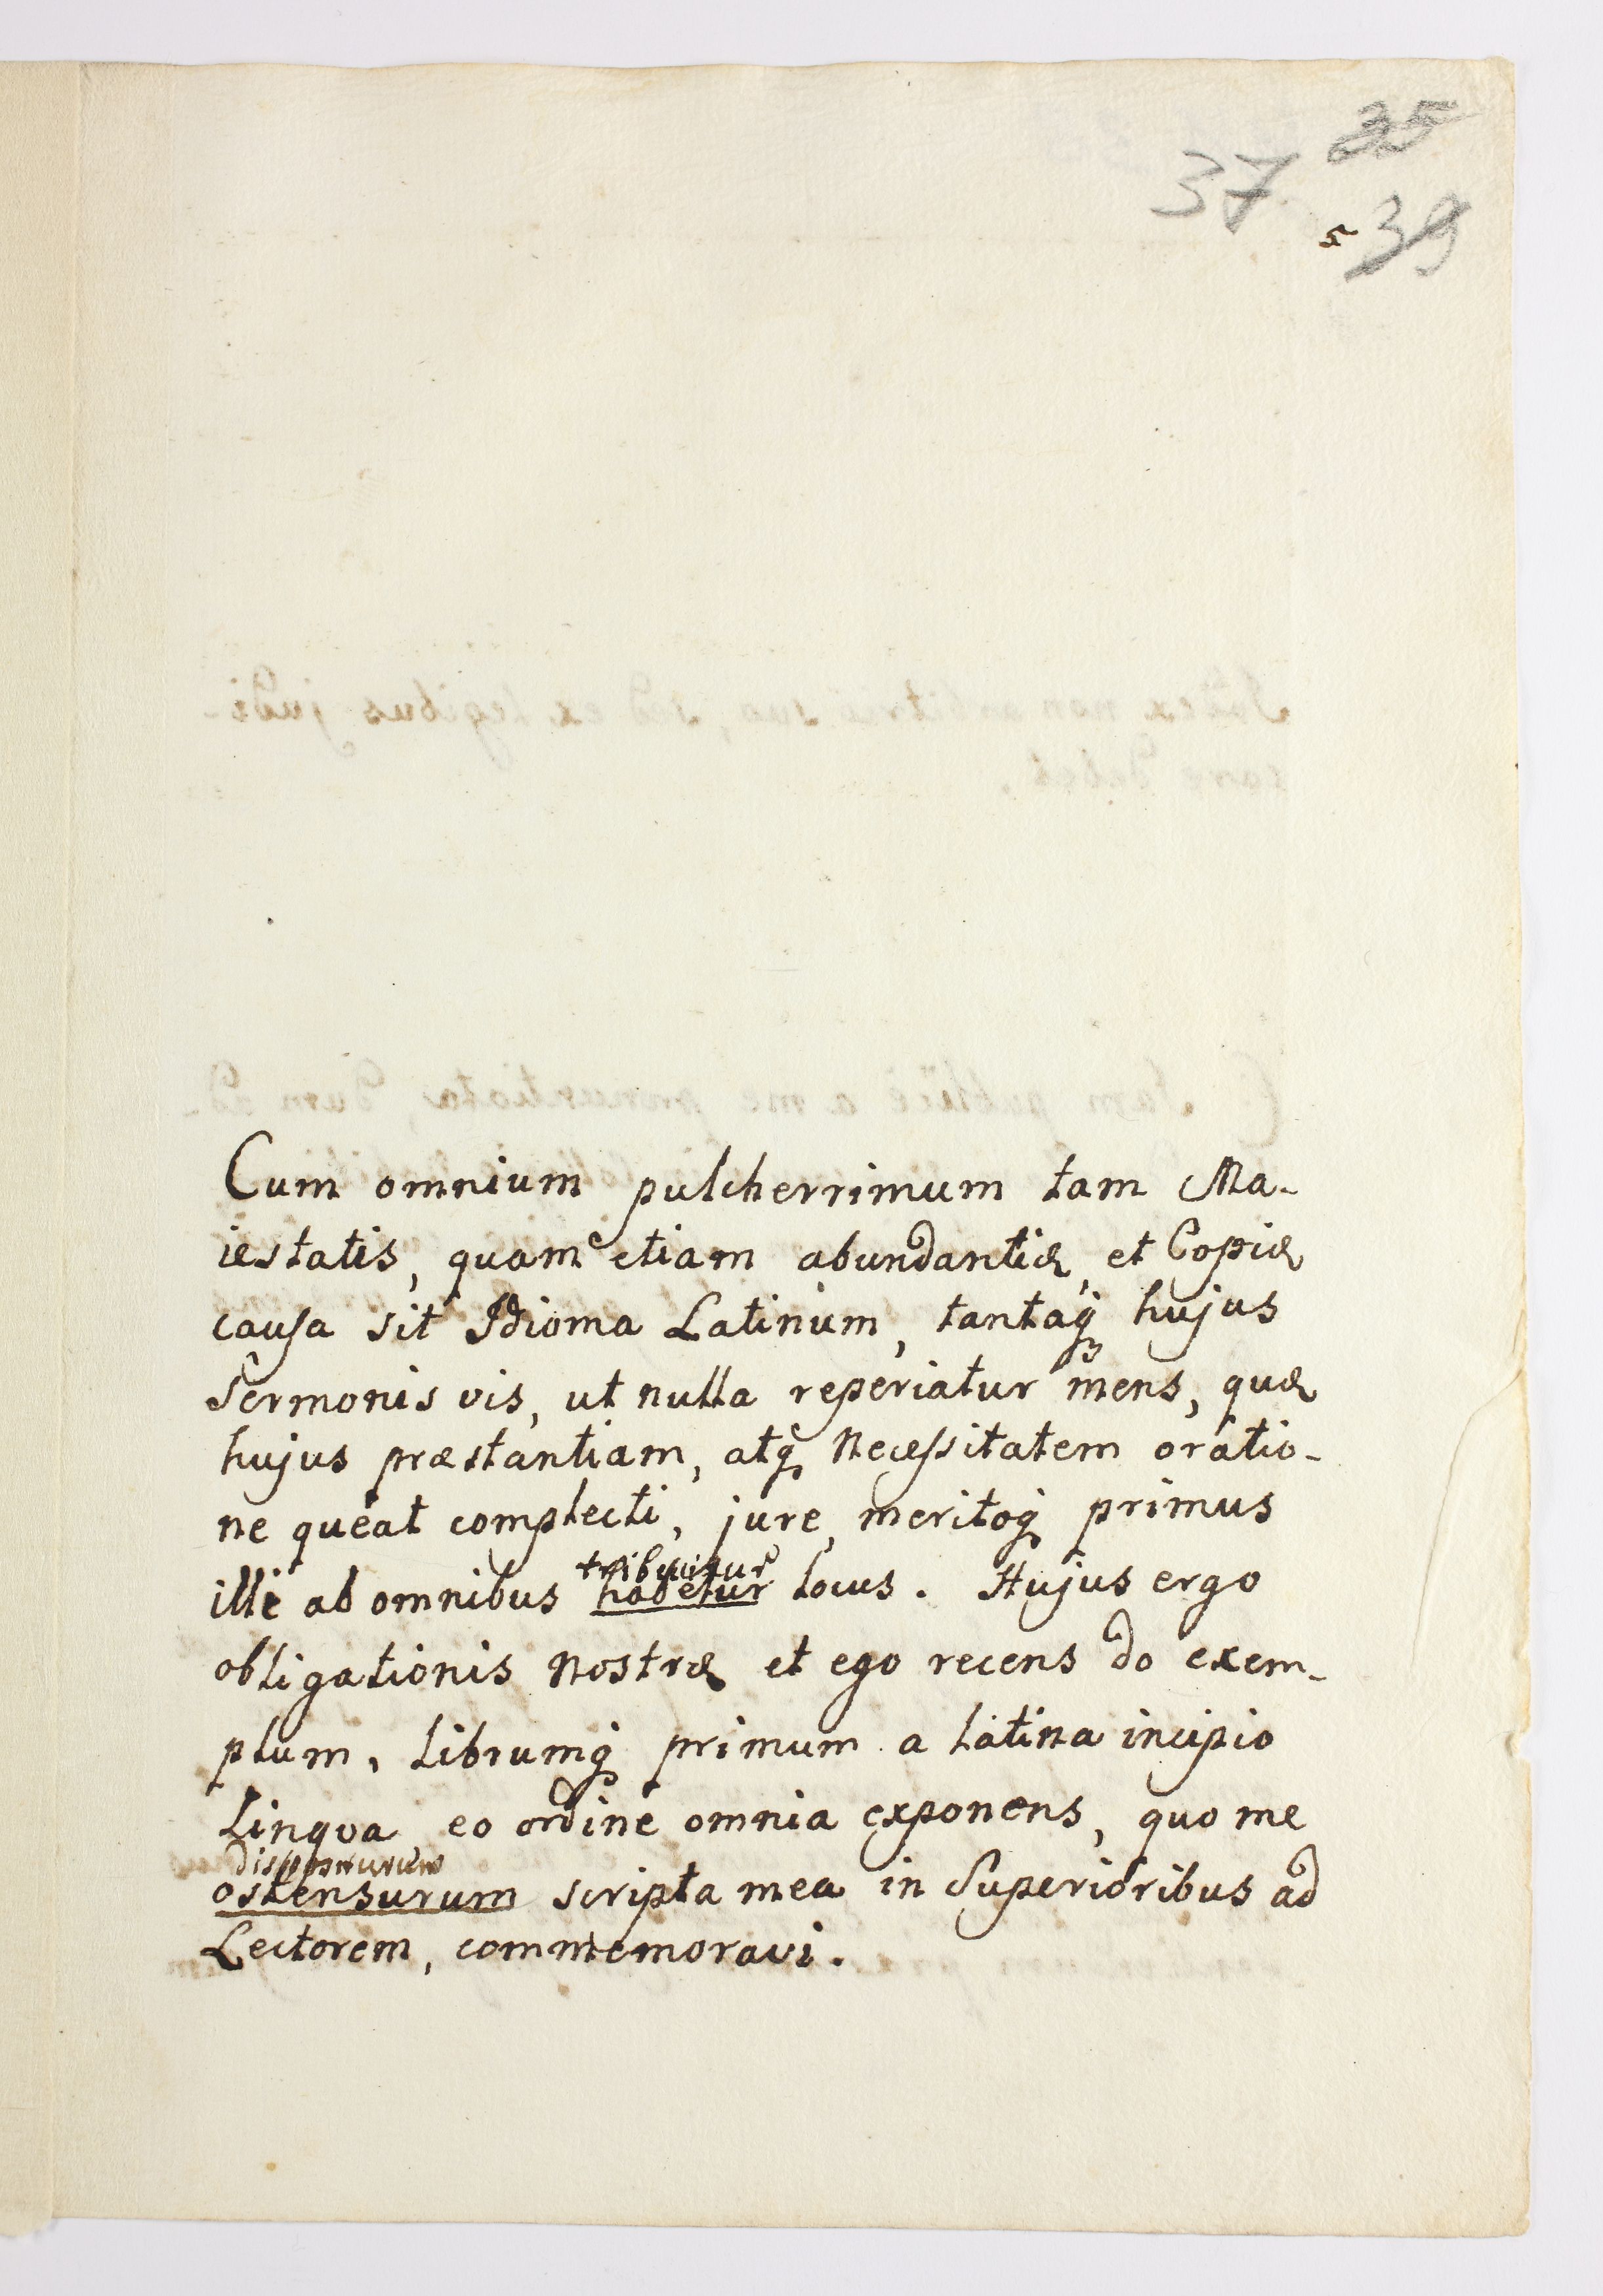 35
37
5 39
Cum omnium pulcherrimum tam Ma-
iestatis, quam etiam abundantiæ, et Copiæ
causa sit Idioma Latinum, tantaq̨ hujus
Sermonis vis, ut nulla reperiatur mens, quæ
hujus præstantiam, atq̨ necessitatem oratio-
ne queat complecti, jure, meritoq̨ primus
tribuitur
ille ab omnibus habetur locus. Hujus ergo
obligationis nostræ et ego recens do exem-
plum, librumq̨ primum a latina incipio
Lingva, eo ordine omnia exponens, quo me
dispositurum
ostensurum scripta mea in Superioribus ad
Lectorem, commemoravi.